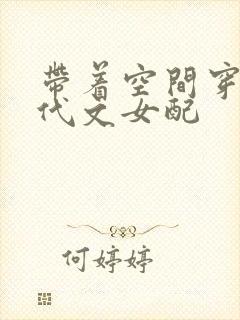 帶着空間穿
代文女配
何婷婷